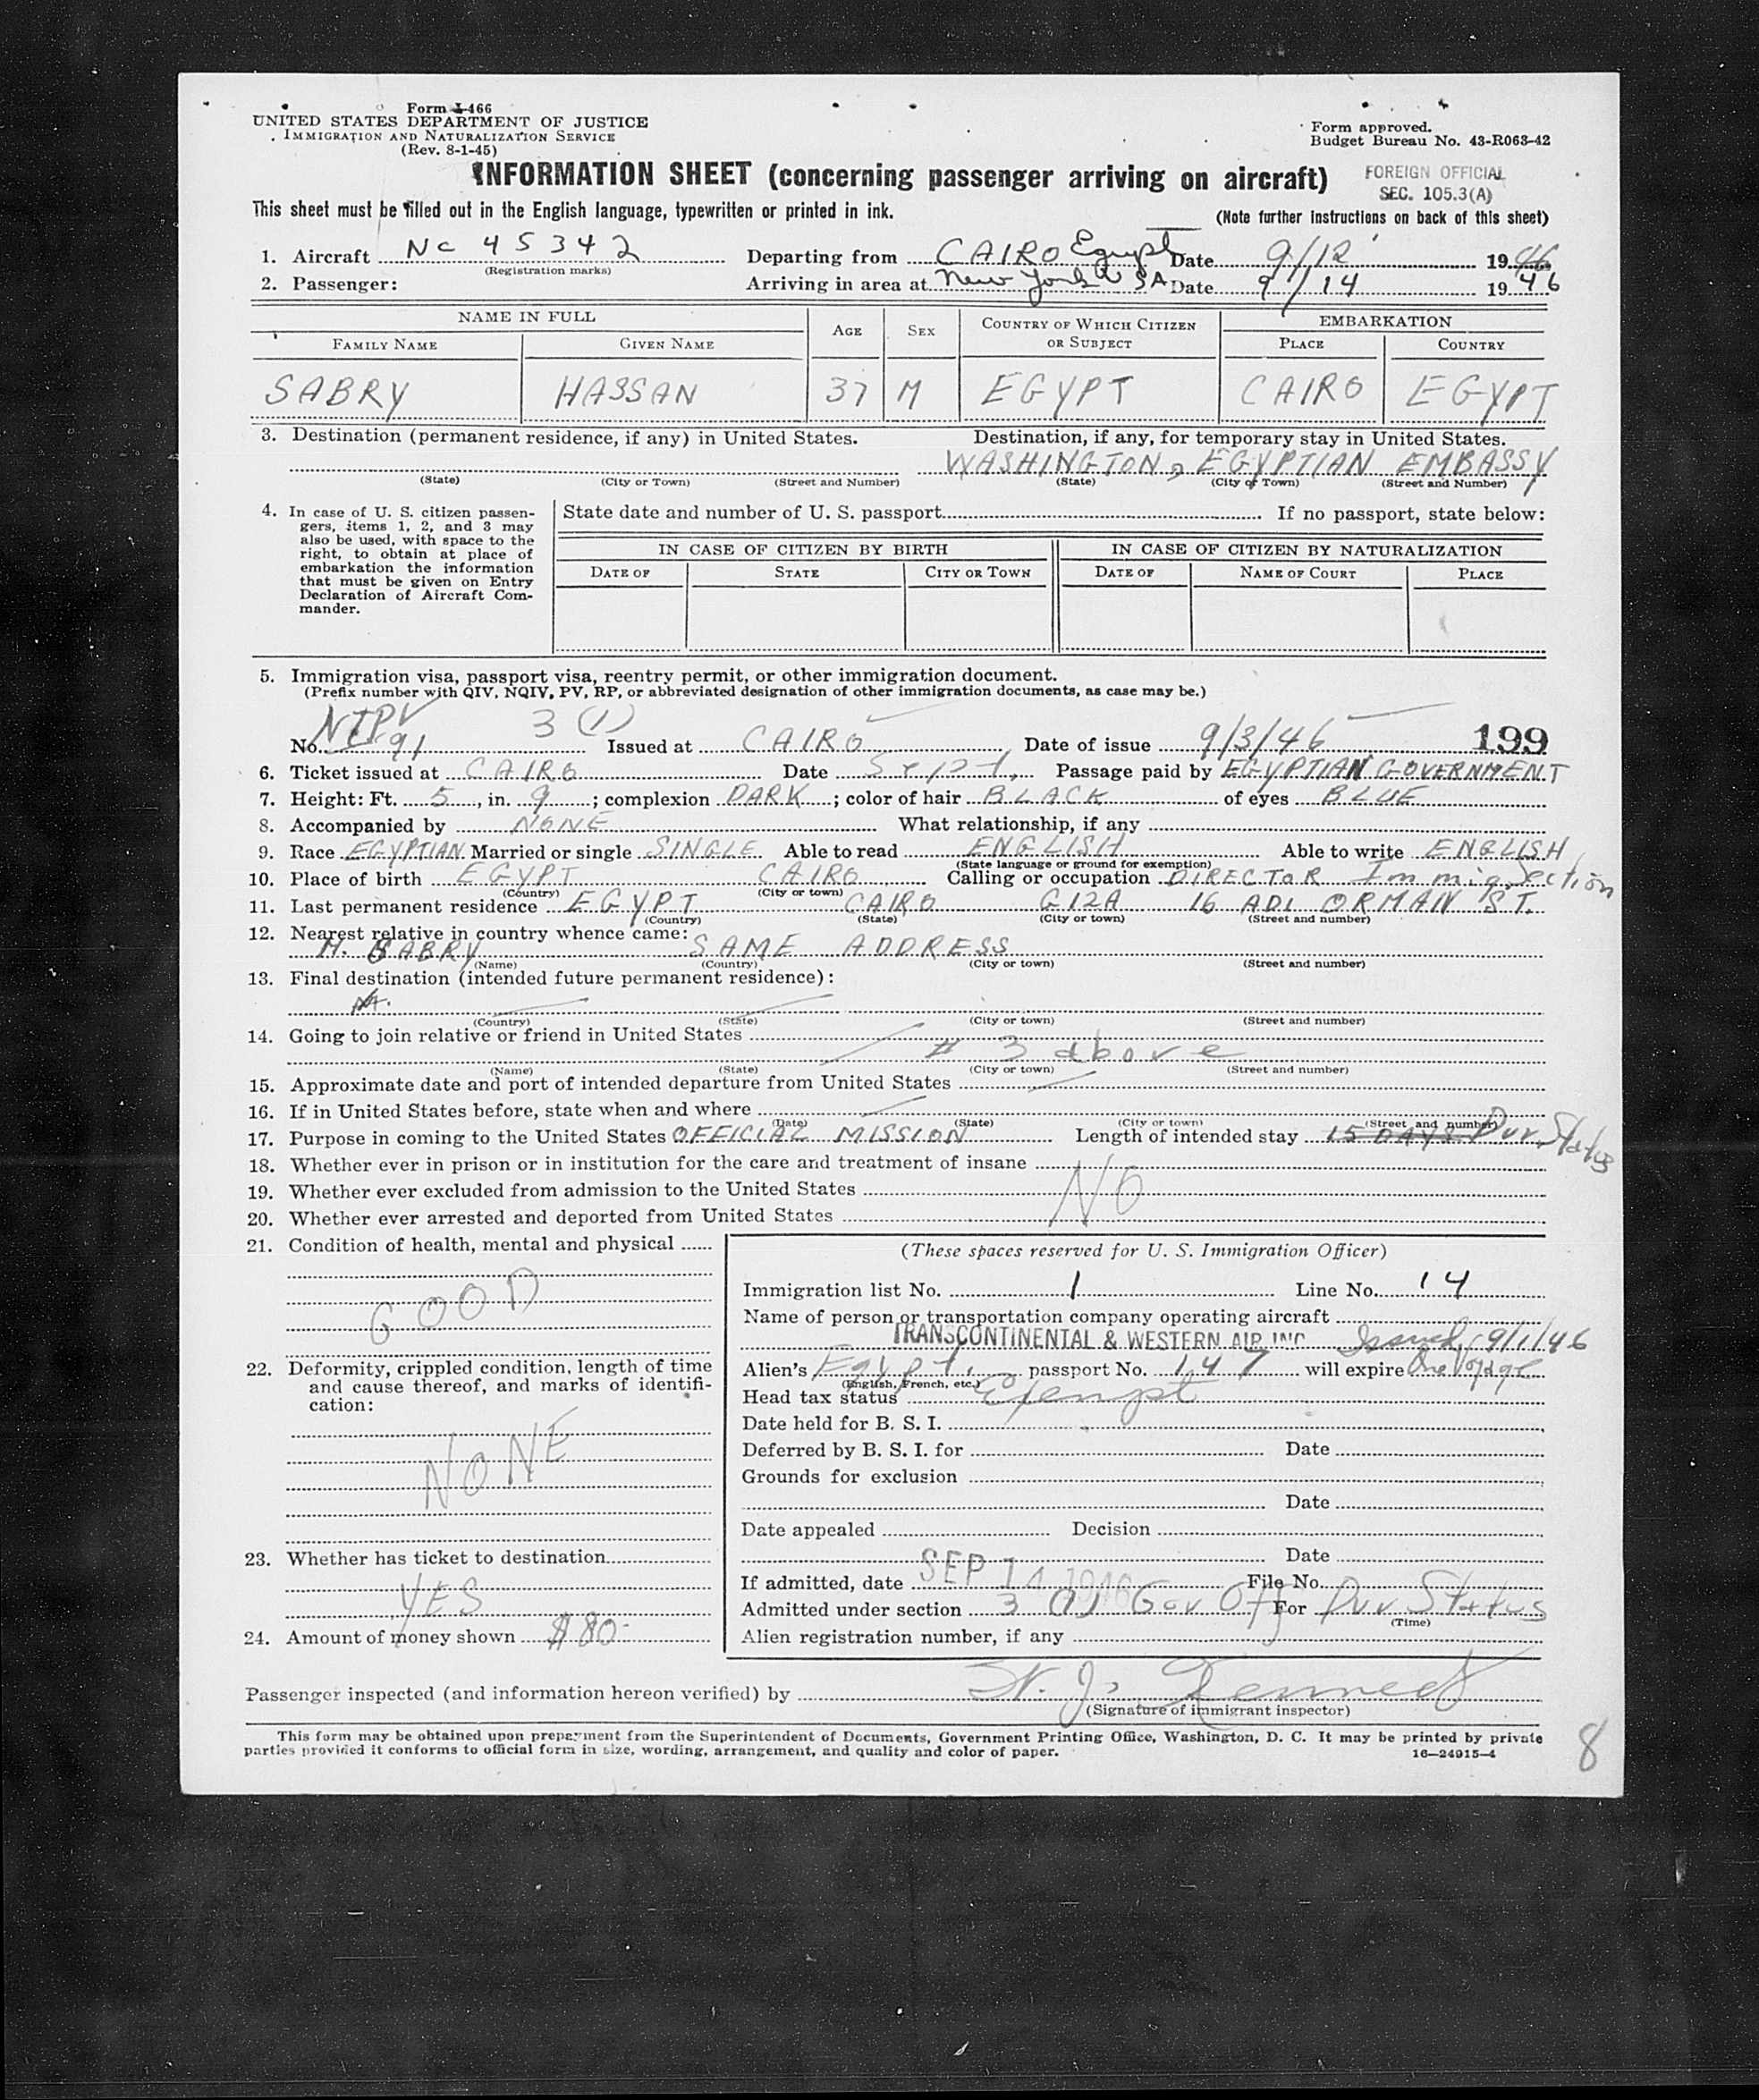 Form I-466
UNITED STATES DEPARTMENT OF JUSTICE
IMMIGRATION AND NATURALIZATION SERVICE
(Rev. 8-1-45)
Form approved.
Budget Bureau No. 43-R063-42
INFORMATION SHEET (concerning passenger arriving on aircraft)
FOREIGN OFFICIAL
SEC. 105.3(A)
This sheet must be filled out in the English language, typewritten or printed in ink.
(Note further instructions on back of this sheet)
1. Aircraft NC 45342 Departing from CAIRO Egypt Date 9/12 1946
(Registration marks)
2. Passenger: Arriving in area at New York USA Date 9/14 1946
NAME IN FULL AGE SEX COUNTRY OF WHICH CITIZEN OR SUBJECT EMBARKATION
FAMILY NAME GIVEN NAME PLACE COUNTRY
SABRY HASSAN 37 M EGYPT CAIRO EGYPT
3. Destination (permanent residence, if any) in United States. Destination, if any, for temporary stay in United States.
WASHINGTON, EGYPTIAN EMBASSY
(State) (City or Town) (Street and Number) (State) (City or Town) (Street and Number)
4. In case of U. S. citizen passen-
gers, items 1, 2, and 3 may
also be used, with space to the
right, to obtain at place of
embarkation the information
that must be given on Entry
Declaration of Aircraft Com-
mander.
State date and number of U. S. passport If no passport, state below:
IN CASE OF CITIZEN BY BIRTH IN CASE OF CITIZEN BY NATURALIZATION
DATE OF STATE CITY OR TOWN DATE OF NAME OF COURT PLACE
5. Immigration visa, passport visa, reentry permit, or other immigration document.
(Prefix number with QIV, NQIV, PV, RP, or abbreviated designation of other immigration documents, as case may be.)
3 (1)
No. 91 Issued at CAIRO Date of issue 9/3/46 199
6. Ticket issued at CAIRO Date Sept. Passage paid by EGYPTIAN GOVERNMENT
7. Height: Ft. 5, in. 9; complexion DARK; color of hair BLACK of eyes BLUE
8. Accompanied by NONE What relationship, if any
9. Race EGYPTIAN Married or single SINGLE Able to read ENGLISH Able to write ENGLISH
(State language or ground for exemption)
10. Place of birth EGYPT CAIRO Calling or occupation DIRECTOR Immig. Section
(Country) (City or town)
11. Last permanent residence EGYPT CAIRO GIZA 16 ADL ORMAN ST.
(Country) (State) (City or town) (Street and number)
12. Nearest relative in country whence came:
H. SABRY SAME ADDRESS
(Name) (Country) (City or town) (Street and number)
13. Final destination (intended future permanent residence):
(Country) (State) (City or town) (Street and number)
14. Going to join relative or friend in United States
# 3 above
(Name) (State) (City or town) (Street and number)
15. Approximate date and port of intended departure from United States
16. If in United States before, state when and where
(Date) (State) (City or town) (Street and number)
17. Purpose in coming to the United States OFFICIAL MISSION Length of intended stay 15 DAYS Dur. Status
18. Whether ever in prison or in institution for the care and treatment of insane
19. Whether ever excluded from admission to the United States NO
20. Whether ever arrested and deported from United States
21. Condition of health, mental and physical
GOOD
22. Deformity, crippled condition, length of time
and cause thereof, and marks of identifi-
cation:
NONE
23. Whether has ticket to destination
YES
24. Amount of money shown $80-
(These spaces reserved for U. S. Immigration Officer)
Immigration list No. 1 Line No. 14
Name of person or transportation company operating aircraft
TRANSCONTINENTAL & WESTERN AIR INC Issued 9/1/46
Alien's Egypt. passport No. 147 will expire One Voyage
(English, French, etc.)
Head tax status Exempt
Date held for B. S. I.
Deferred by B. S. I. for Date
Grounds for exclusion
Date
Date appealed Decision
Date
If admitted, date SEP 14 1946 File No.
Admitted under section 3 (1) Gov Off For Dur Status
(Time)
Alien registration number, if any
Passenger inspected (and information hereon verified) by
(Signature of immigrant inspector)
This form may be obtained upon prepayment from the Superintendent of Documents, Government Printing Office, Washington, D. C. It may be printed by private
parties provided it conforms to official form in size, wording, arrangement, and quality and color of paper. 16—24915-4
8